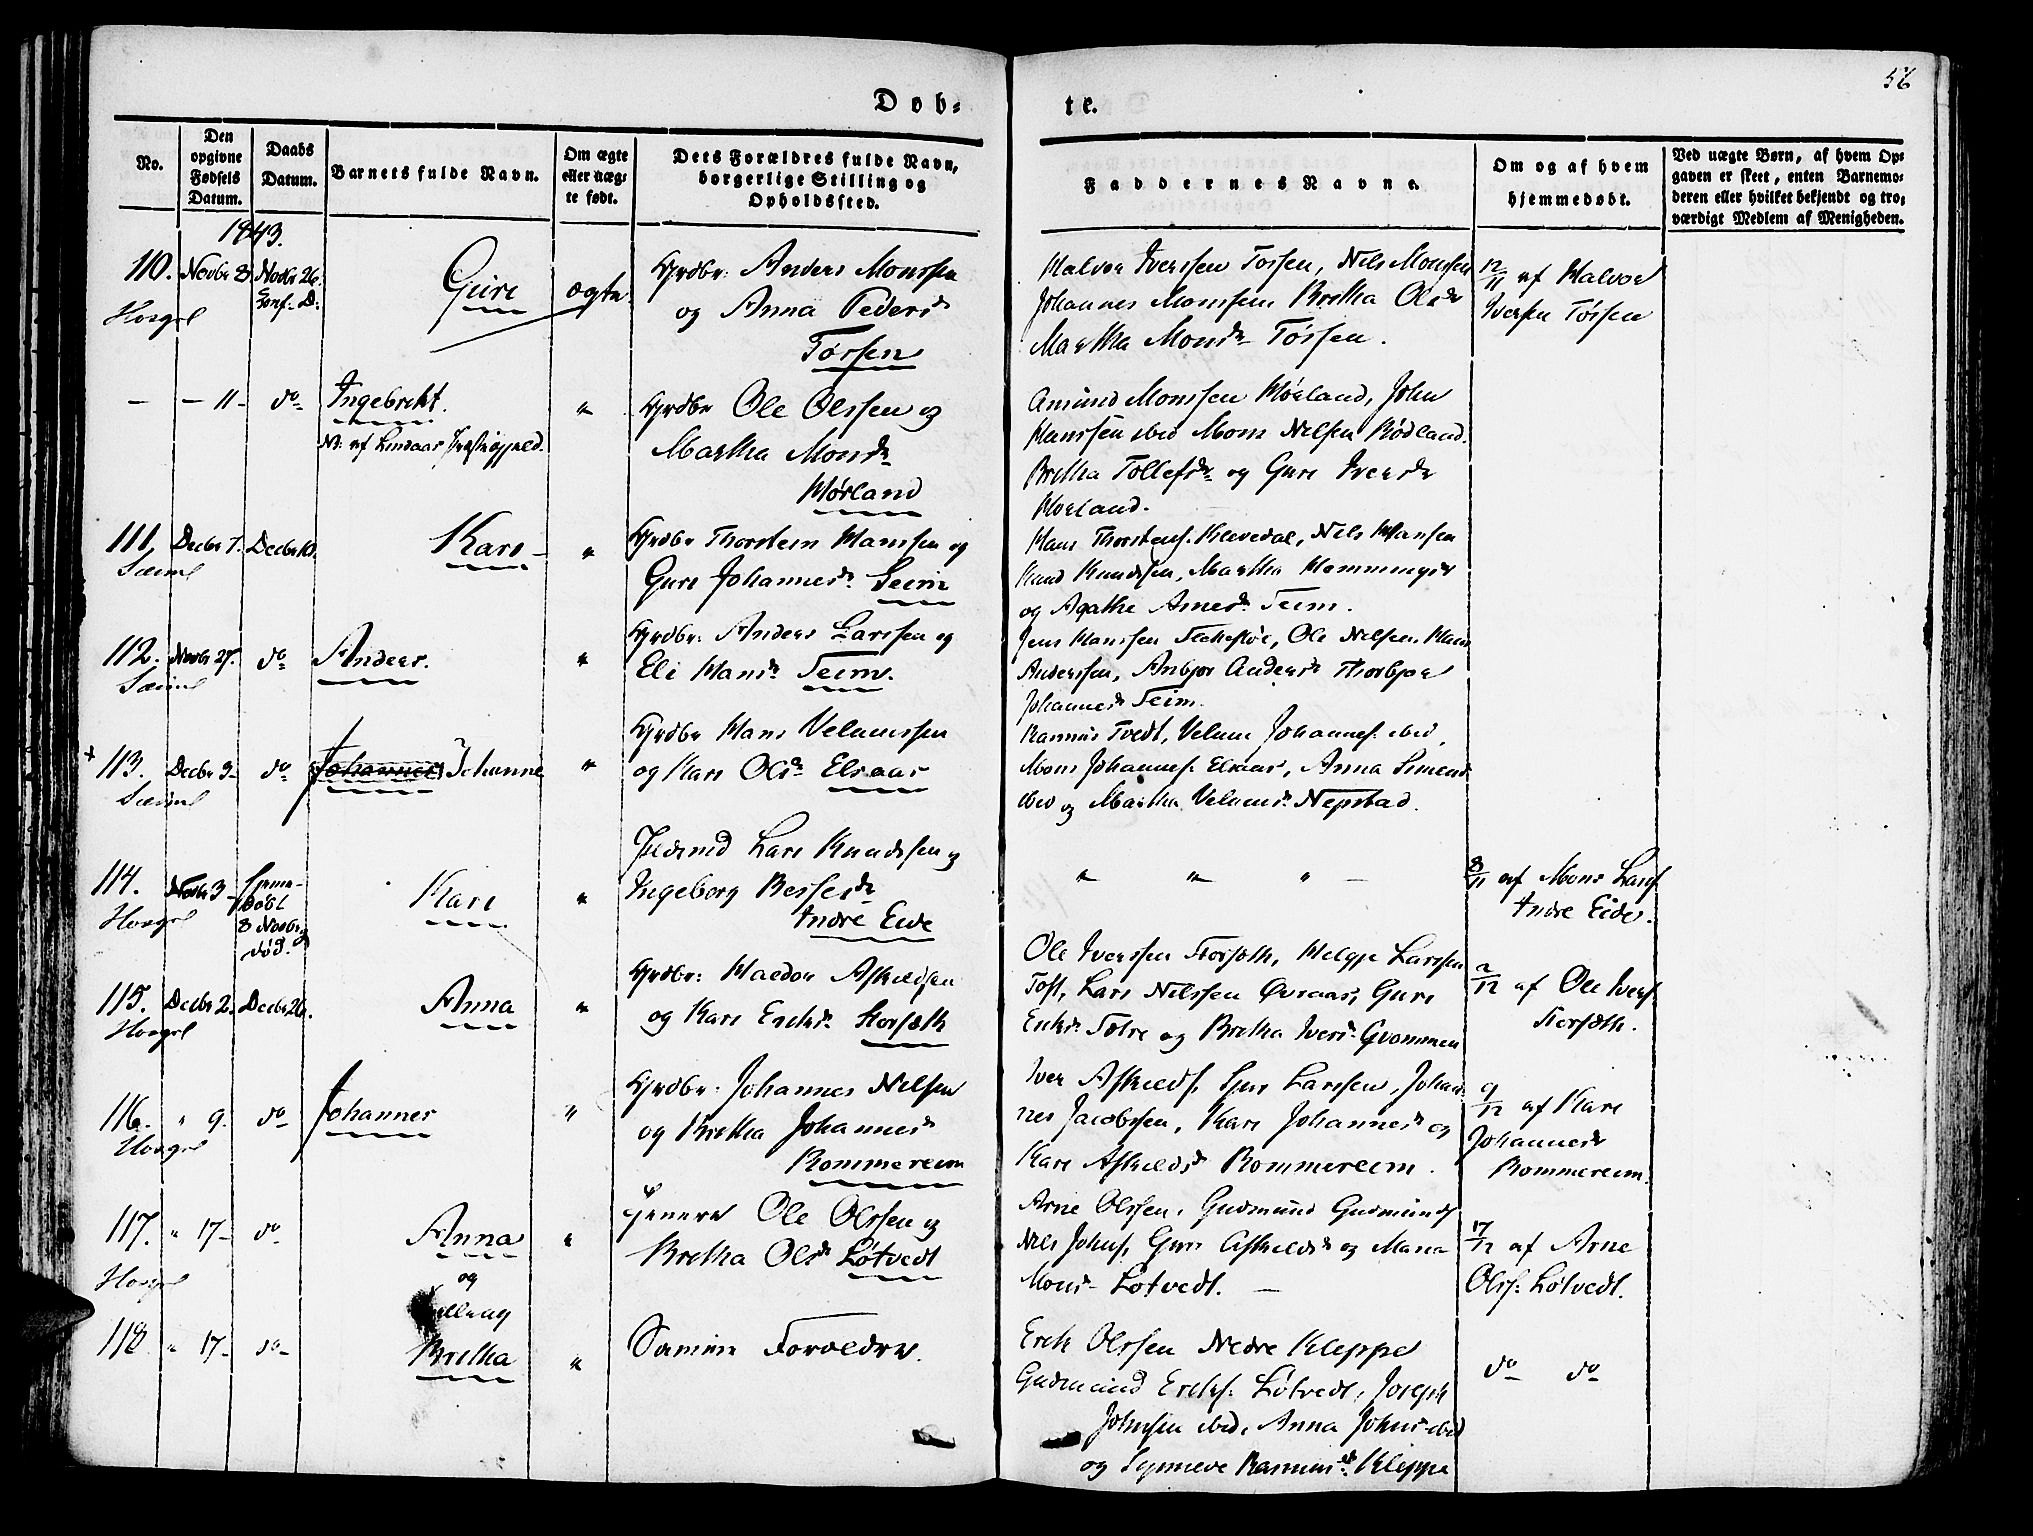 56
Døb=
te.
No.
Den opgivne Fødsels Datum.
Daabs Datum.
Barnets fulde Navn.
Om ægte eller uæg= te født.
Dets Forældres fulde Navn, borgerlige Stilling og Opholdssted.
Faddernes Navne.
Om og af hvem hjemmedøbt.
Ved uægte Børn, af hvem Op= gaven er skeet, enten Barnemo= deren eller hvilket bekjendt og tro= værdigt Medlem af Menigheden.
1843.
110. Novbr 8 Novbr 26. Guri ægte. Grdbr: Anders Monssen
og Anna Peders
Tøssen
Halvor Iverssen Tossen, Nils Monssen
Johannes Monssen Britha Ols
Martha Mons Tössen.
12/11 af Halvor
Iversen Tössen
— — 11 — do Ingebrikt. " Grdbr Ole Olssen og
Martha Mons
Hörland
Amund Monssen Hörland, John
Hanssen ibid Mons Nelsen Rödland.
Britha Tollefs og Guri Ivers
Hörland.
111. Decbr 7. Decbr 10. Kari — " Grdbr Thorstein Hanssen og
Guri Johannes Seim
Nils Hansen
Knud Knudssen, Martha Hemmings
og Agathe Arnes Seim.
112. Novbr 27. do Anders. " Grdbr: Anders Larssen og
Eli Hans Seim.
Jens Hanssen Ole Nelssen Hans
Anderssen, Anbjør Anders Thorbjør
Johannes Seim.
+ 113. Decbr 3 — do Johannes Johanne " Grdbr Hans Velumssen
og Kari Ols Elsaas
Rasmus Tvedt, Velum Johannes. ibid,
Mons Johannes. Elsaas, Anna Simens
ibid og Martha Velums Nepstad.
114. Novbr 3 — Hjemme-
døbt
8 Novbr og
død. Kari " Lars Knudssen og
Ingeborg Besses
Indre Eide
" " " —
8/11 af Mons Larss
Indre Eide.
115. Decbr 2. Decbr 26. Anna " Grdbr: Haldor Askildsen
og Kari Eriks Storsæth
Ole Iverssen Storsæth, Helgje Larssen
Toft, Lars Nilssen Øvraas, Guri
Eriks Sætre og Britha Ivers Gvammen
2/12 af Ole Ivers.
Storsæth.
116. " 9. do Johannes " Grdbr: Johannes Nelsen
og Britha Johannes
Rommereim
Iver Askilds. Larssen, Johan=
nes Jacobssen, Kari Johannes og
Kari Askilds Rommereim.
9/12 af Kari
Johannes
Rommereim.
117. " 17 — do Anna " Ole Olssen og
Britha Ols Løtvedt
Arne Olssen, Gudmund Gudmunds
Nils Johns, Guri Askilds og Maria
Mons Løtvedt. —
17/12 af Arne
Olss: Løtvedt.
og
118. " 17 — do Britha " Samme Forældre.
Erik Olssen Nedre Kleppe
Gudmund Eriks. Løtvedt, Joseph
Johnsen ibid, Anna Johns ibid
og Synneve Rasmus Kleppe
do do